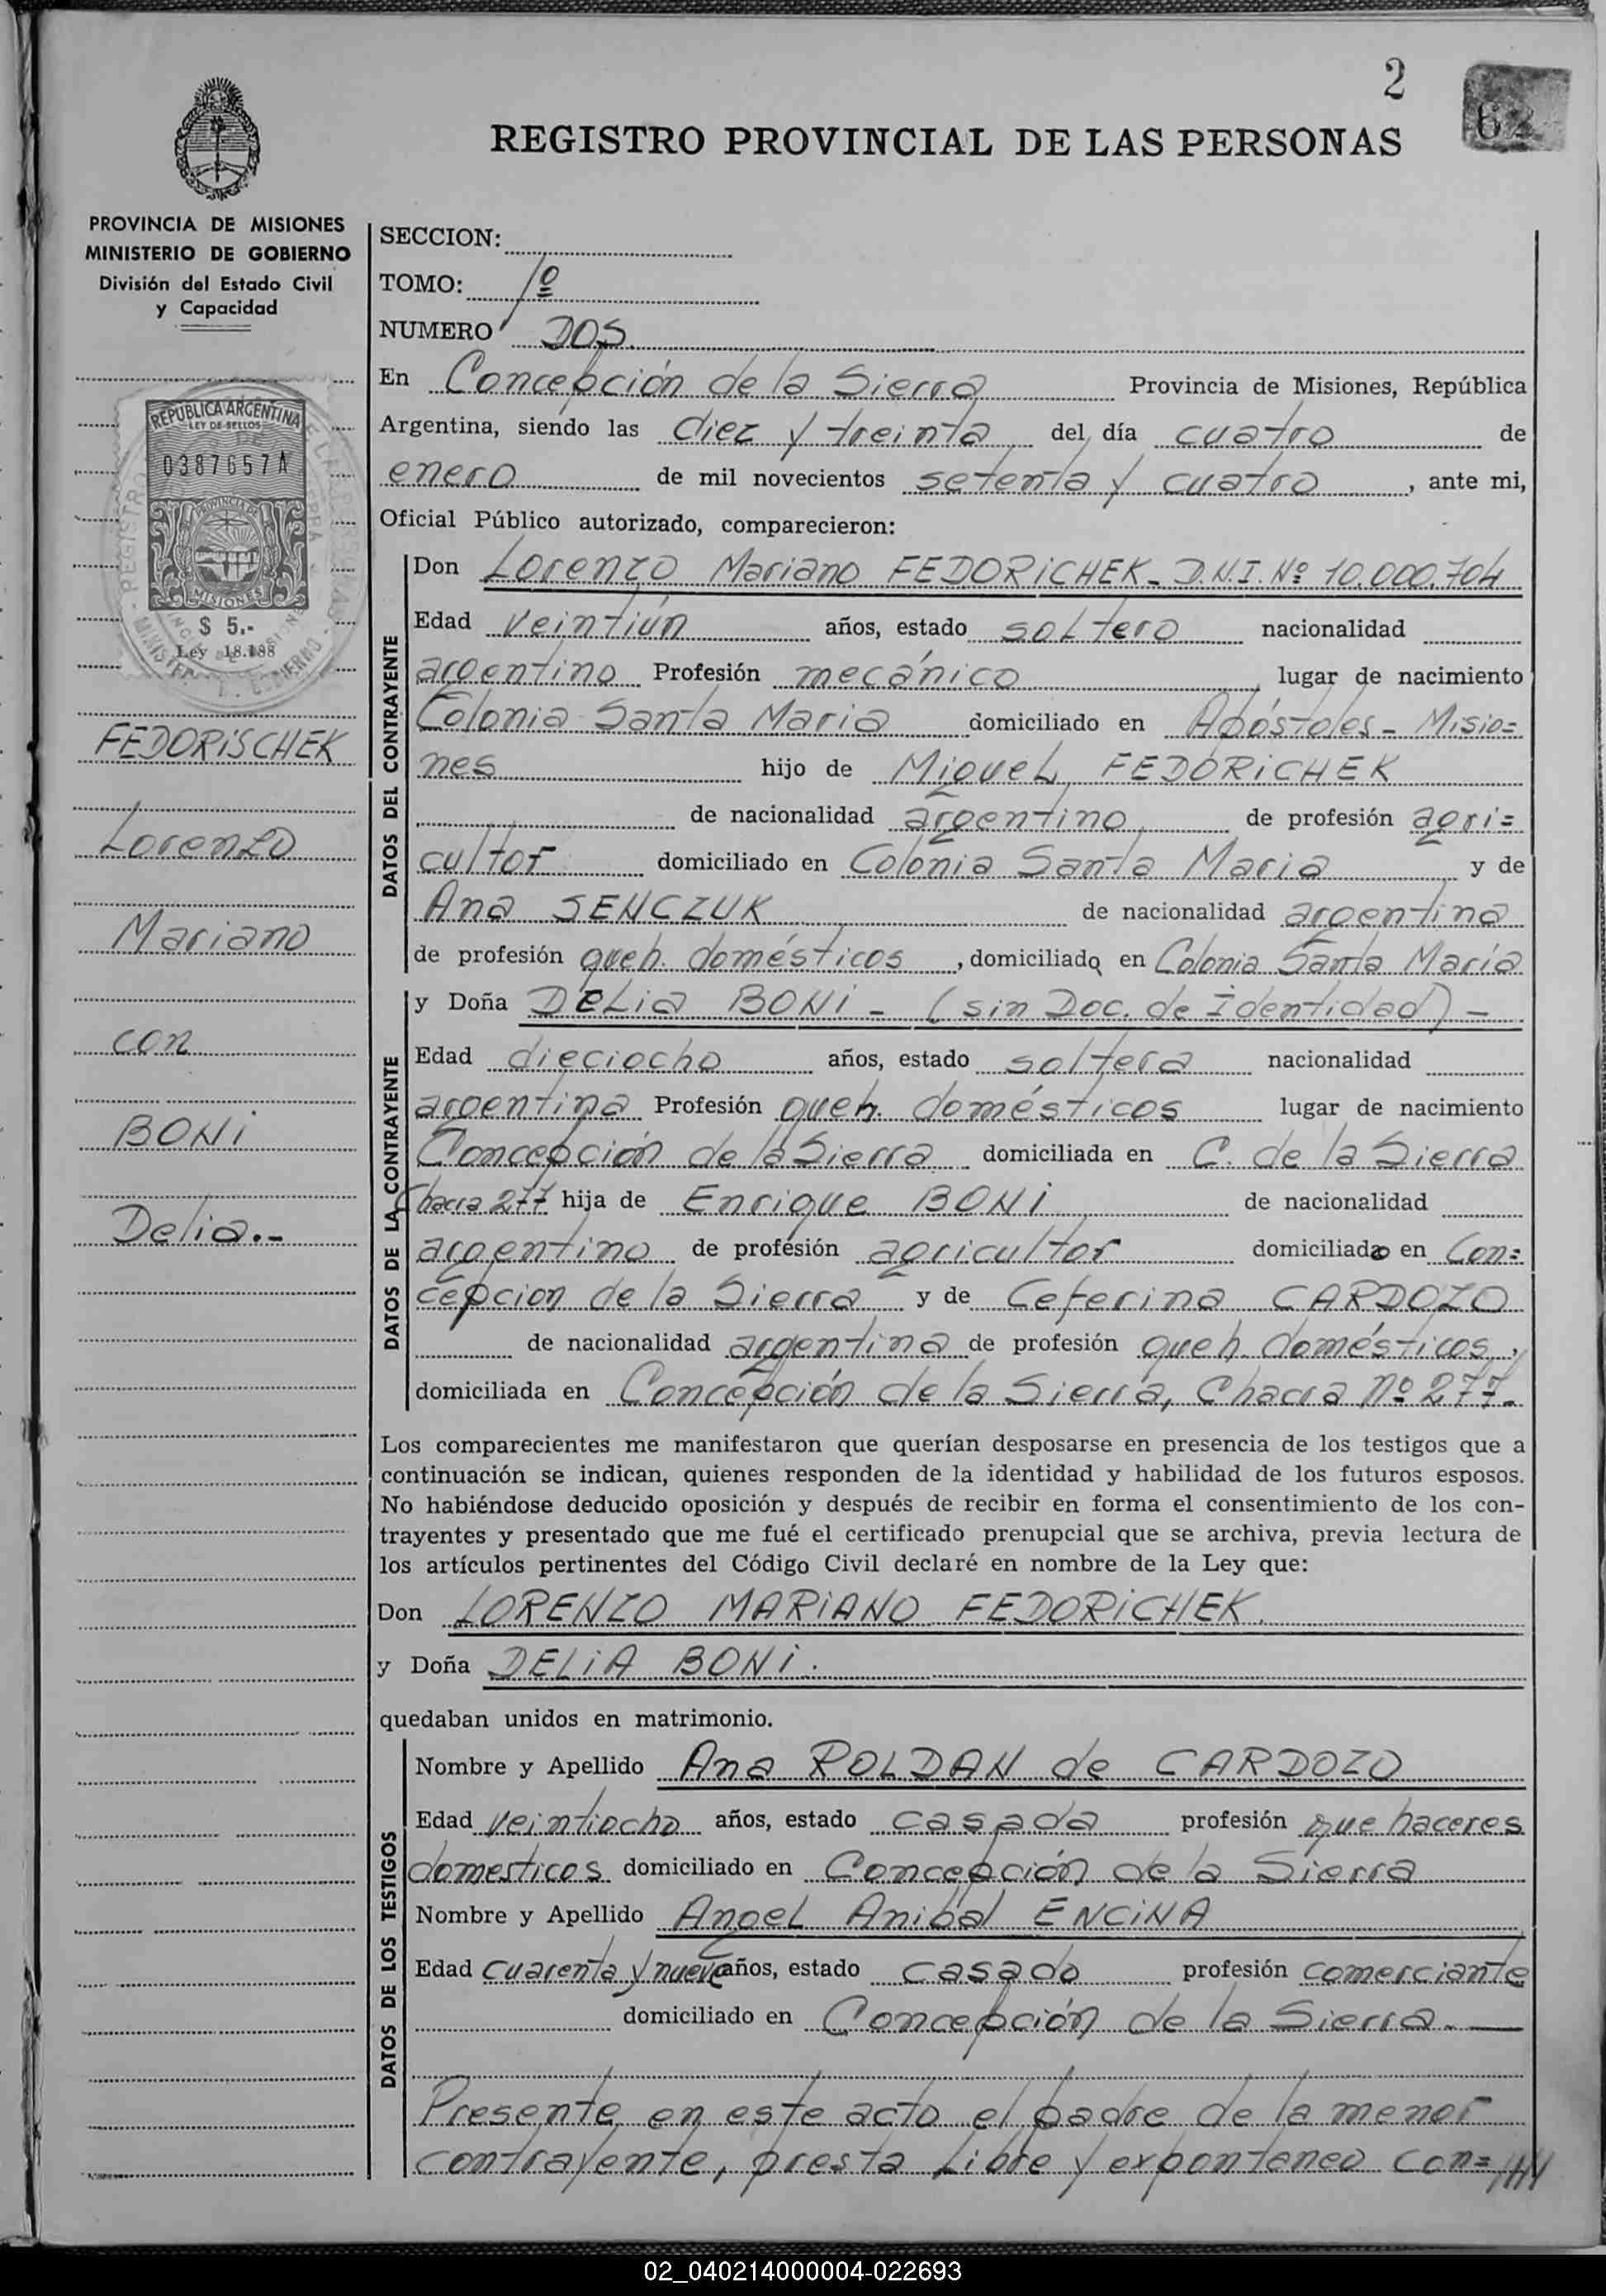 2
62
REGISTRO PROVINCIAL DE LAS PERSONAS
PROVINCIA DE MISIONES
MINISTERIO DE GOBIERNO
División del Estado Civil
y Capacidad
REPUBLICA ARGENTINA
LEY DE SELLOS
0387657A
PROVINCIA DE
MISIONES
$ 5.-
Ley 18.188
FEDORISCHEK
Lorenzo
Mariano
con
BONi
Delia.-
SECCION:
TOMO: 1º
NUMERO DOS.
En Concepción de la Sierra Provincia de Misiones, República
Argentina, siendo las diez y treinta del día cuatro de
enero de mil novecientos setenta y cuatro, ante mi,
Oficial Público autorizado, comparecieron:
DATOS DEL CONTRAYENTE
Don Lorenzo Mariano FEDORiCHEK - D.N.I. Nº 10.000.704
Edad veintiún años, estado soltero nacionalidad
argentino Profesión mecánico lugar de nacimiento
Colonia Santa Maria domiciliado en Apóstoles - Misio=
nes hijo de Miguel FEDORiCHEK
de nacionalidad argentino de profesión agri=
cultor domiciliado en Colonia Santa Maria y de
Ana SENCZUK de nacionalidad argentina
de profesión queh. domésticos, domiciliada en Colonia Santa María
DATOS DE LA CONTRAYENTE
y Doña DELia BONi - (sin Doc. de Identidad) -
Edad dieciocho años, estado soltera nacionalidad
argentina Profesión queh. domésticos lugar de nacimiento
Concepción de la Sierra domiciliada en C. de la Sierra
Chacra 277 hija de Enrique BONi de nacionalidad
argentino de profesión agricultor domiciliado en Con=
cepcion de la Sierra y de Ceferina CARDOZO
de nacionalidad argentina de profesión queh. domésticos,
domiciliada en Concepción de la Sierra, Chacra Nº 277.
Los comparecientes me manifestaron que querían desposarse en presencia de los testigos que a
continuación se indican, quienes responden de la identidad y habilidad de los futuros esposos.
No habiéndose deducido oposición y después de recibir en forma el consentimiento de los con-
trayentes y presentado que me fué el certificado prenupcial que se archiva, previa lectura de
los artículos pertinentes del Código Civil declaré en nombre de la Ley que:
Don LORENZO MARiANO FEDORiCHEK.
y Doña DELiA BONi.
quedaban unidos en matrimonio.
DATOS DE LOS TESTIGOS
Nombre y Apellido Ana ROLDAN de CARDOZO
Edad veintiocho años, estado casada profesión que haceres
domesticos domiciliado en Concepción de la Sierra
Nombre y Apellido Angel Anibal ENCiNA
Edad cuarenta y nueve años, estado casado profesión comerciante
domiciliado en Concepción de la Sierra.
Presente en este acto el padre de la menor
contrayente, presta Libre y expontaneo con=////
02_040214000004-022693